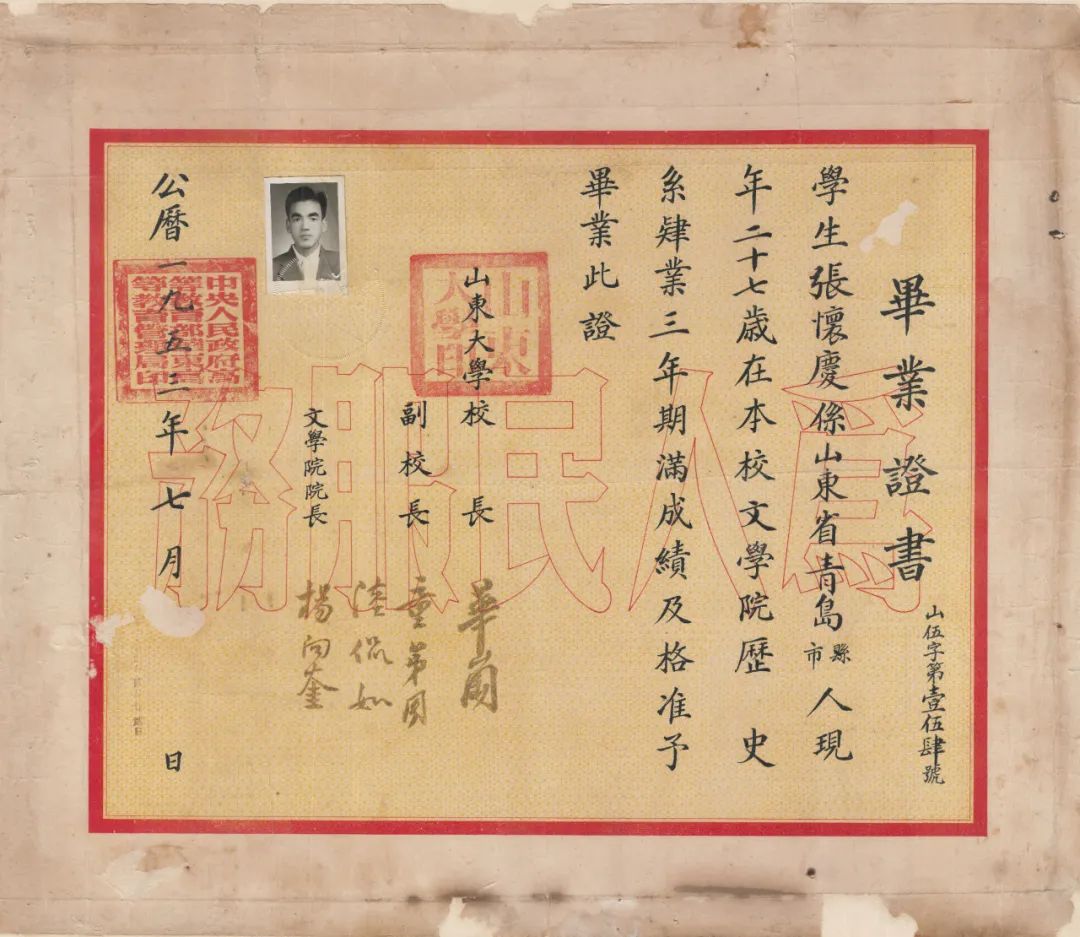 畢業證書
山伍字第壹伍肆號
學生張懷慶係山東省青島縣市人現
年二十七歲在本校文學院歷史
系肄業三年期滿成績及格准予
畢業此證
山東大學校長 華崗
副校長 童第周
陸侃如
文學院院長 楊向奎
公曆一九五二年七月 日
為人民服務
山東大學印